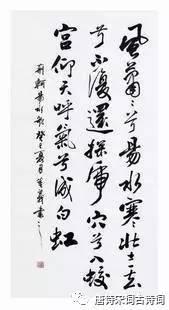 風蕭蕭兮易水寒壯士一去
兮不復還探虎穴兮入蛟
宮仰天呼氣兮成白虹
荊軻易水歌癸巳夏月
唐诗宋词古诗词